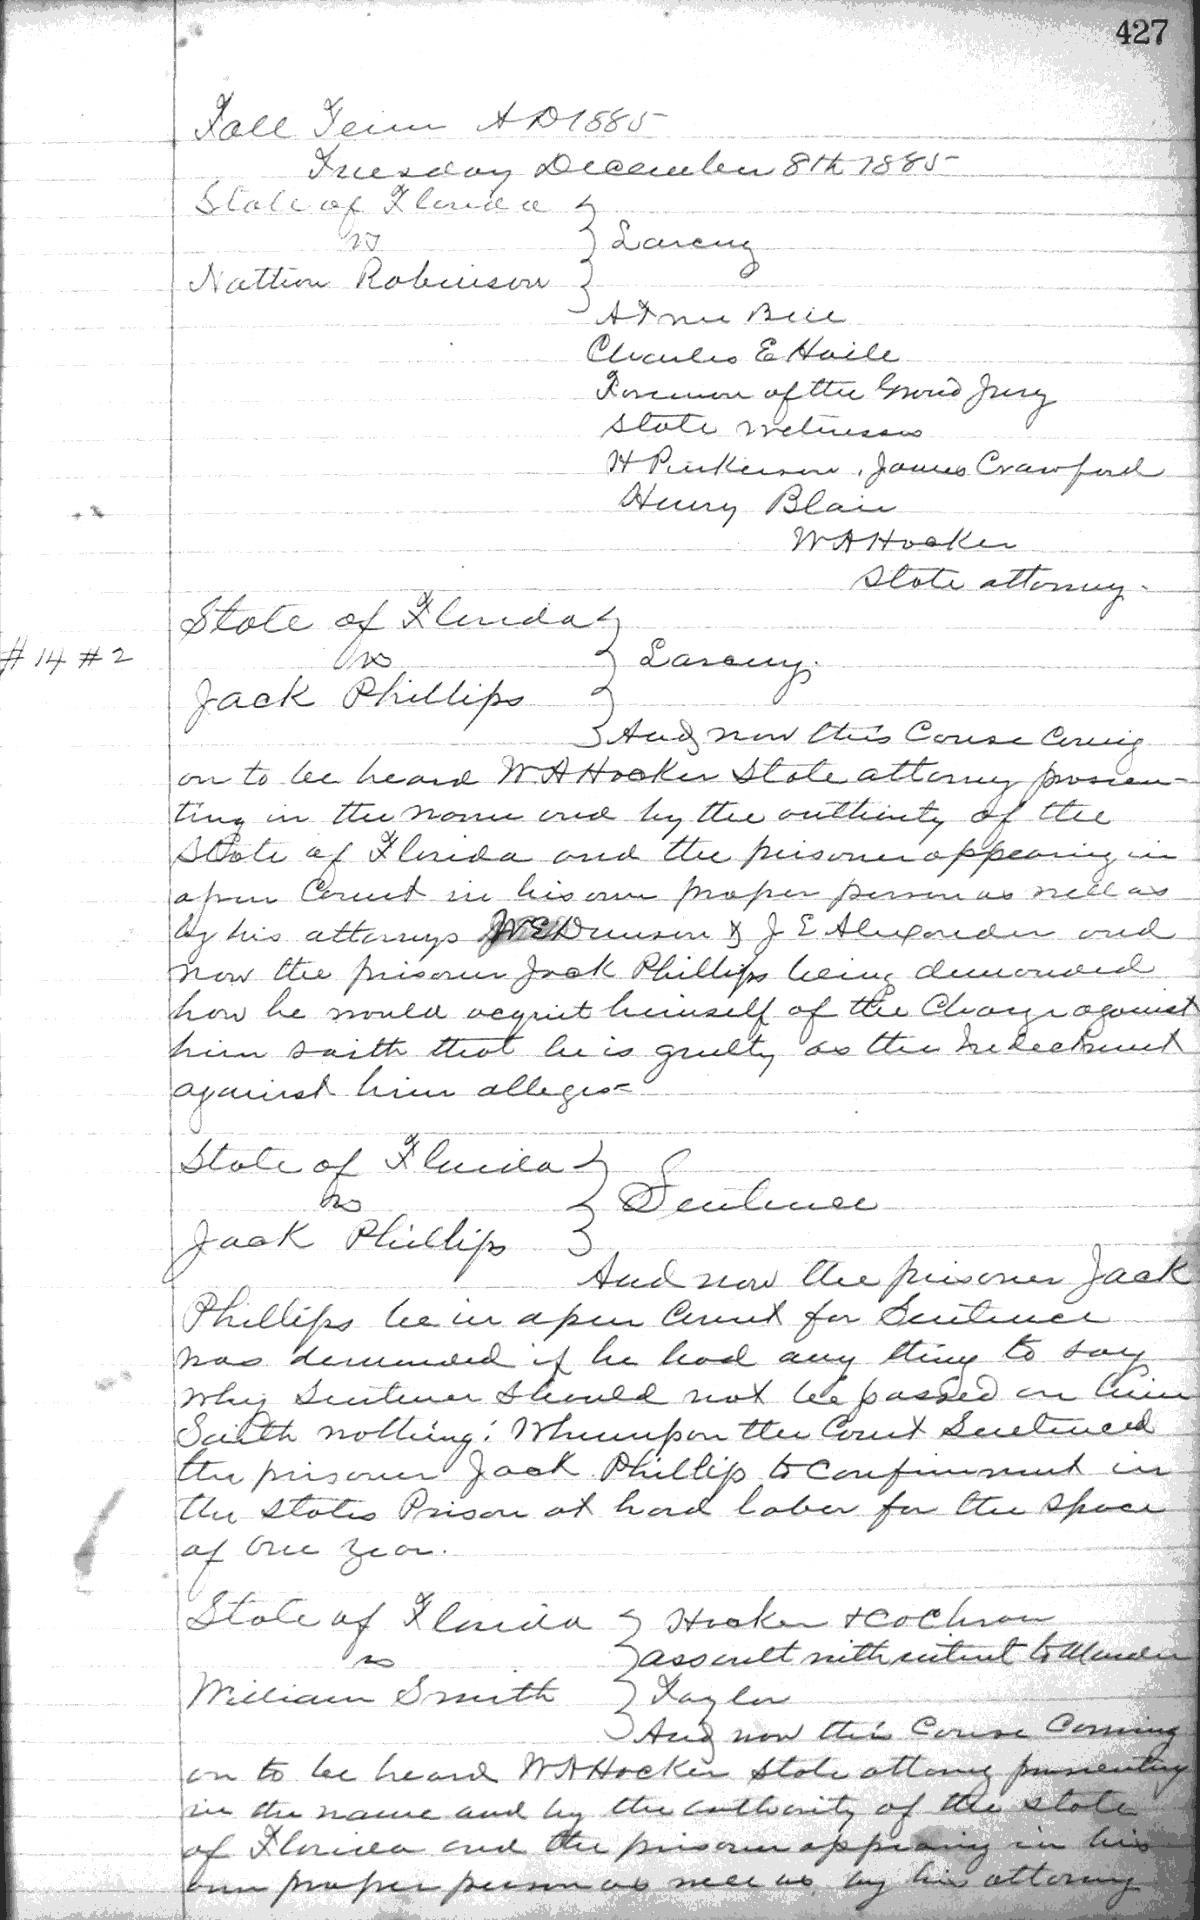 427
Fall Term AD 1885
Tuesday December 8th 1885
State of Florida
vs
Larceny
Robinson
A True Bill
Charles E Haile
Foreman of the Grand Jury
State witnesses
H Pinkerson, James Crawford
Henry Blair
W A Hocker
State attorney.
State of Florida
#14 #2
vs
Larceny.
Jack Phillips
And now this Cause Coming
on to be heard W A Hocker State attorney prosecu-
ting in the name and by the authority of the
State of Florida and the prisoner appearing in
open Court in his own proper person as well as
by his attorneys & J E Alexander and
now the prisoner Jack Phillips being demanded
how he would acquit himself of the Charge against
him saith that he is guilty as the Indictment
against him alleges
State of Florida
vs
Sentence
Jack Phillips
And now the prisoner Jack
Phillips be in open Court for Sentence
was demanded if he had any thing to say
why Sentence should not be passed on him
Saith nothing: Whereupon the Court Sentenced
the prisoner Jack Phillips to Confinement in
the States Prison at hard labor for the space
of one year.
State of Florida
Hocker & Cochran
vs
assault with intent to Murder
William Smith
Taylor
And now this Cause Coming
on to be heard W A Hocker State attorney prosecuting
in the name and by the authority of the State
of Florida and the prisoner appearing in his
own proper person as well as by his attorney